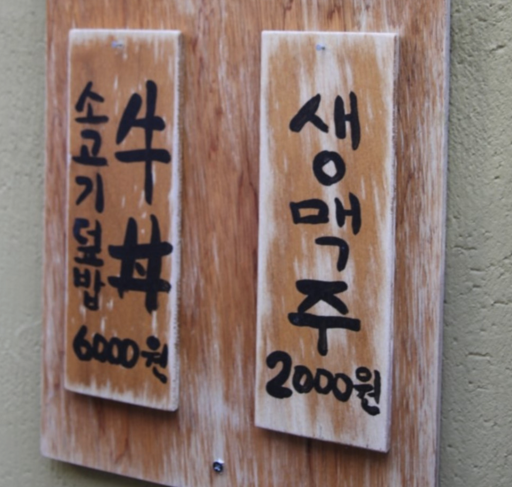 牛丼
소고기덮밥
6000원
생맥주
2000원